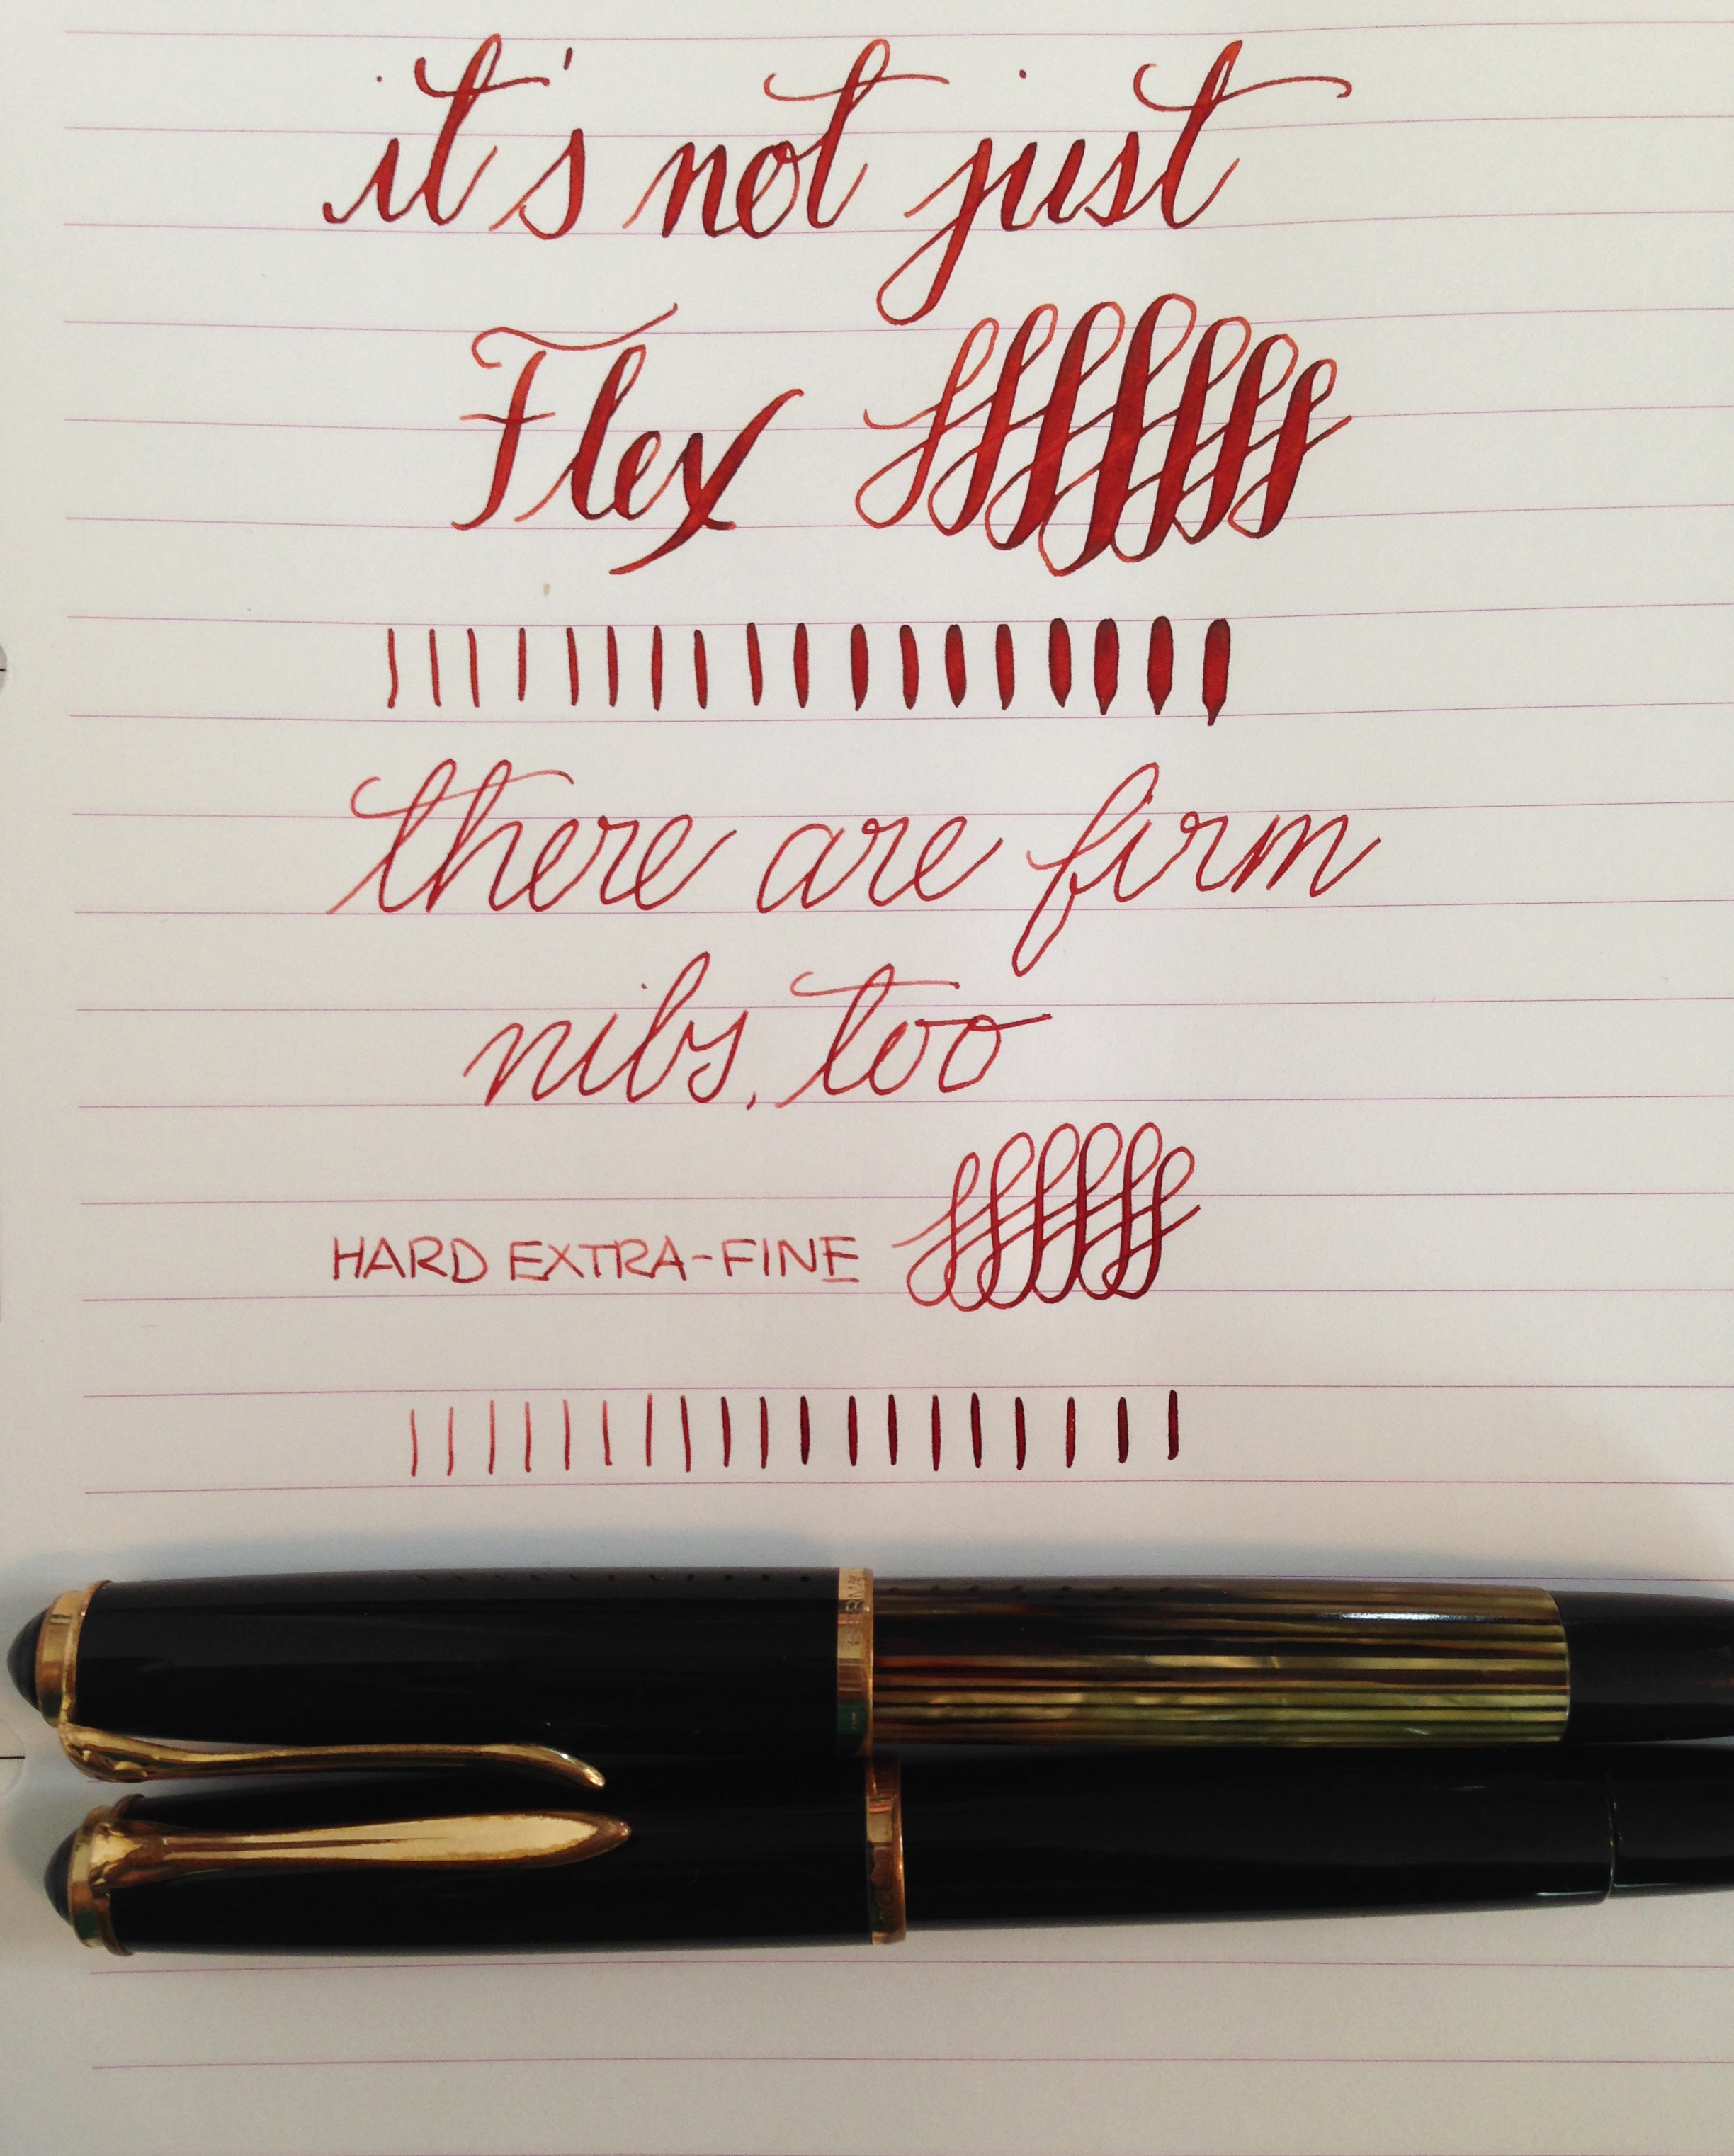 it's not just
Flex
there are firm
nibs, too
HARD EXTRA-FINE